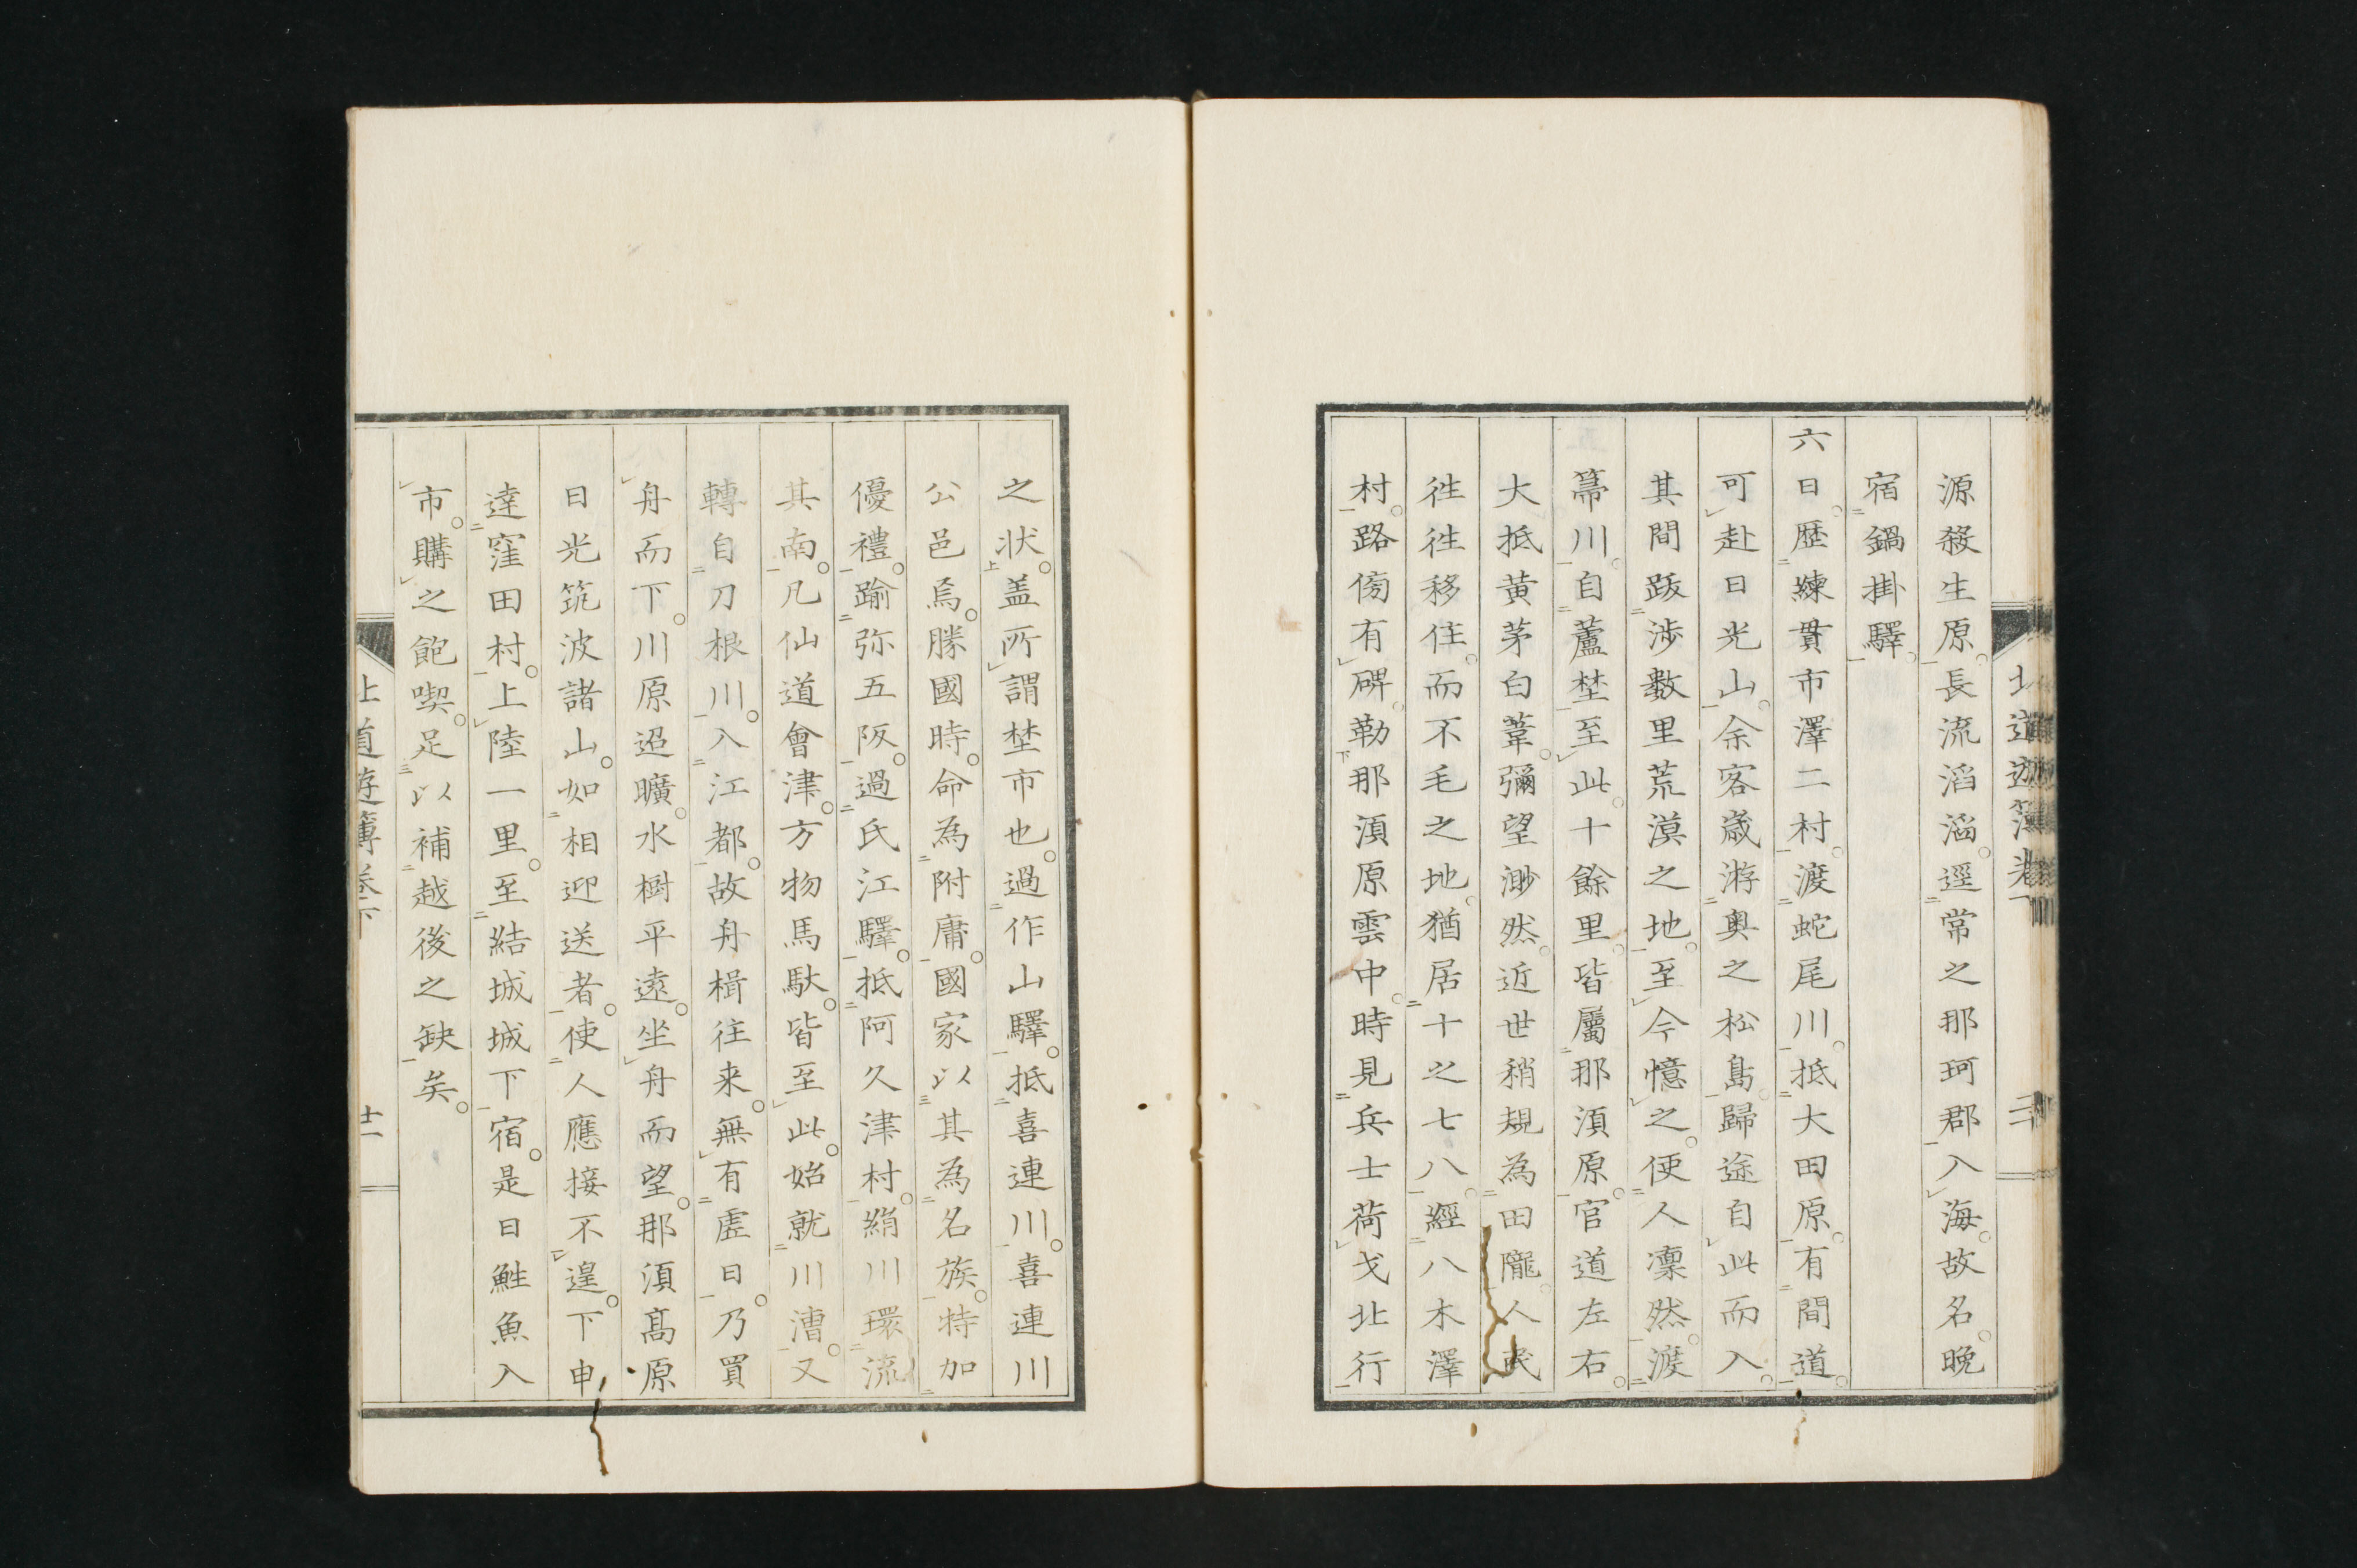 源殺生原。長流滔滔。逕常之那珂郡入海。故名。晚
宿鍋掛驛。
六日。歴練貫市澤二村。渡蛇尾川。抵大田原。有間道。
可赴日光山。余客歳游奥之松島。歸途自此而入。
其間跋渉數里荒漠之地。至今憶之。便人凜然。渡
箒川。自蘆埜至此。十餘里。皆屬那須原。官道左右。
大抵黄茅白葦。彌望渺然。近世稍規為田隴。人民
徃徃移住。而不毛之地。猶居十之七八。經八木澤
村。路傍有碑。勒那須原雲中。時見兵士荷戈北行
之状。盖所謂埜市也。過作山驛。抵喜連川。喜連川
公邑焉。勝國時。命為附庸。國家以其為名族。特加
優禮。踰弥五阪。過氏江驛。抵阿久津村。絹川環流
其南。凡仙道會津。方物馬馱。皆至此。始就川漕。又
轉自刀根川。入江都。故舟楫往来。無有虚日。乃買
舟而下。川原迢曠。水樹平遠。坐舟而望。那須髙原
日光筑波諸山。如相迎送者。使人應接不遑。下申
達窪田村。上陸一里。至結城城下宿。是日鮏魚入
市。購之飽喫。足以補越後之缺矣。
北道遊簿卷下
十一